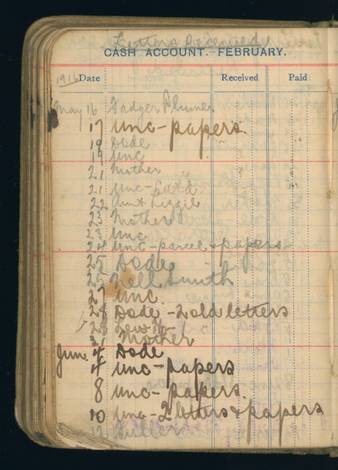 Letters Received
CASH ACCOUNT. FEBRUARY.
1916 Date Received Paid
May 16 Gadger Plumer
17 Unc-papers.
19 Dode
19 Unc
21 Mother
21 Unc-Card
22 Aunt Lizzie
23 Mother
23 Unc
24 Unc-parcel & papers
25 Dode
25 Nell Smith
27 Unc.
28 Dode-2 old letters
28
31 Mother
June 4 Dode
4 Unc-papers
8 Unc-papers.
10 Unc-2 letters & papers
12